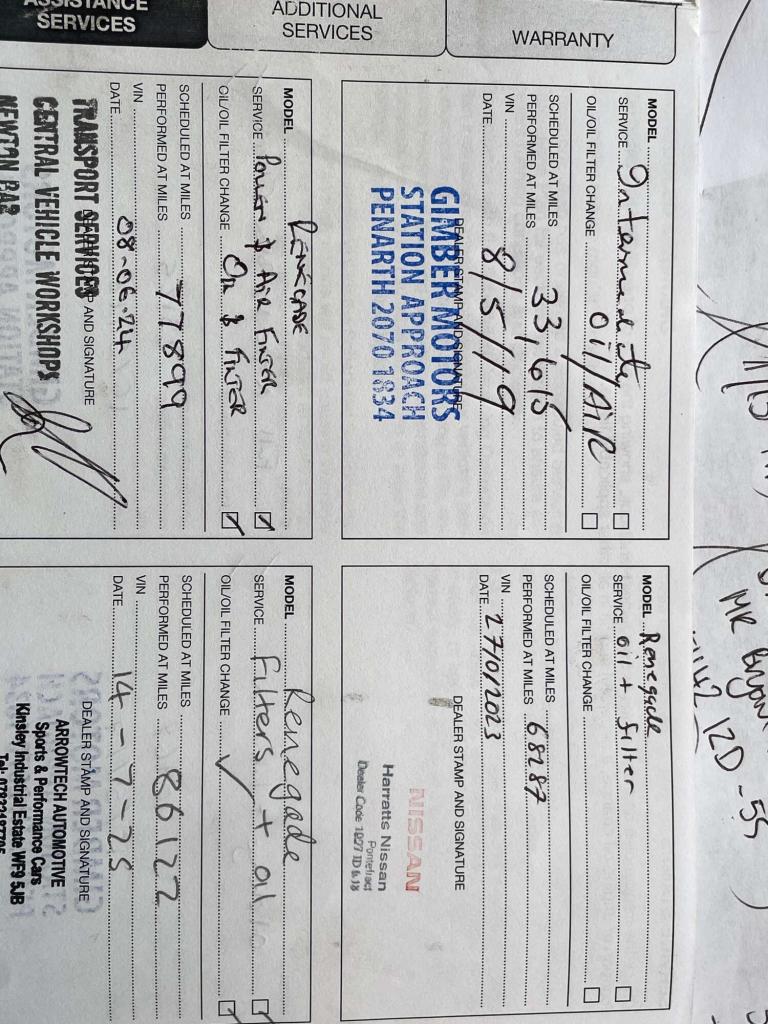 ASSISTANCE
SERVICES
ADDITIONAL
SERVICES
WARRANTY
MODEL
SERVICE Intermediate
OIL/OIL FILTER CHANGE oil/AiR
SCHEDULED AT MILES
PERFORMED AT MILES 33,615
VIN
DATE 8/5/19
DEALER STAMP AND SIGNATURE
GIMBER MOTORS
STATION APPROACH
PENARTH 2070 1834
MODEL Renegade
SERVICE oil + filter
OIL/OIL FILTER CHANGE
SCHEDULED AT MILES
PERFORMED AT MILES 68287
VIN
DATE 27/01/2023
DEALER STAMP AND SIGNATURE
NISSAN
Harratts Nissan
Pontefract
Dealer Code 1927 ID 618
MODEL RENEGADE
SERVICE Pollen & AIR FILTER
OIL/OIL FILTER CHANGE OIL & FILTER
SCHEDULED AT MILES
PERFORMED AT MILES 77899
VIN
DATE 08-06-24
STAMP AND SIGNATURE
TRANSPORT SERVICES
CENTRAL VEHICLE WORKSHOPS
NEWTON BAR
MODEL Renegade
SERVICE Filters + oil
OIL/OIL FILTER CHANGE ✓
SCHEDULED AT MILES
PERFORMED AT MILES 86122
VIN
DATE 14-7-25
DEALER STAMP AND SIGNATURE
ARROWTECH AUTOMOTIVE
Sports & Performance Cars
Kinsley Industrial Estate WF9 5JB
MR
12D-55